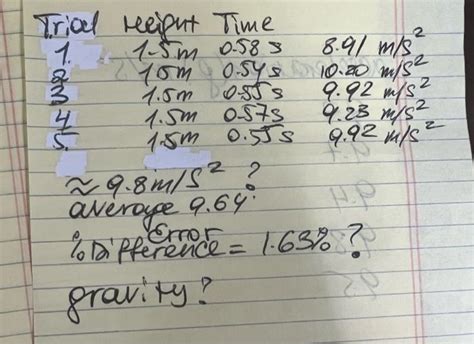 Trial Height Time
1 1.5m 0.58s 8.91 m/s²
2 1.5m 0.54s 10.20 m/s²
3 1.5m 0.55s 9.92 m/s²
4 1.5m 0.57s 9.23 m/s²
5 1.5m 0.55s 9.92 m/s²
≈ 9.8m/s² ?
average 9.64
Error
% Difference = 1.63% ?
gravity?